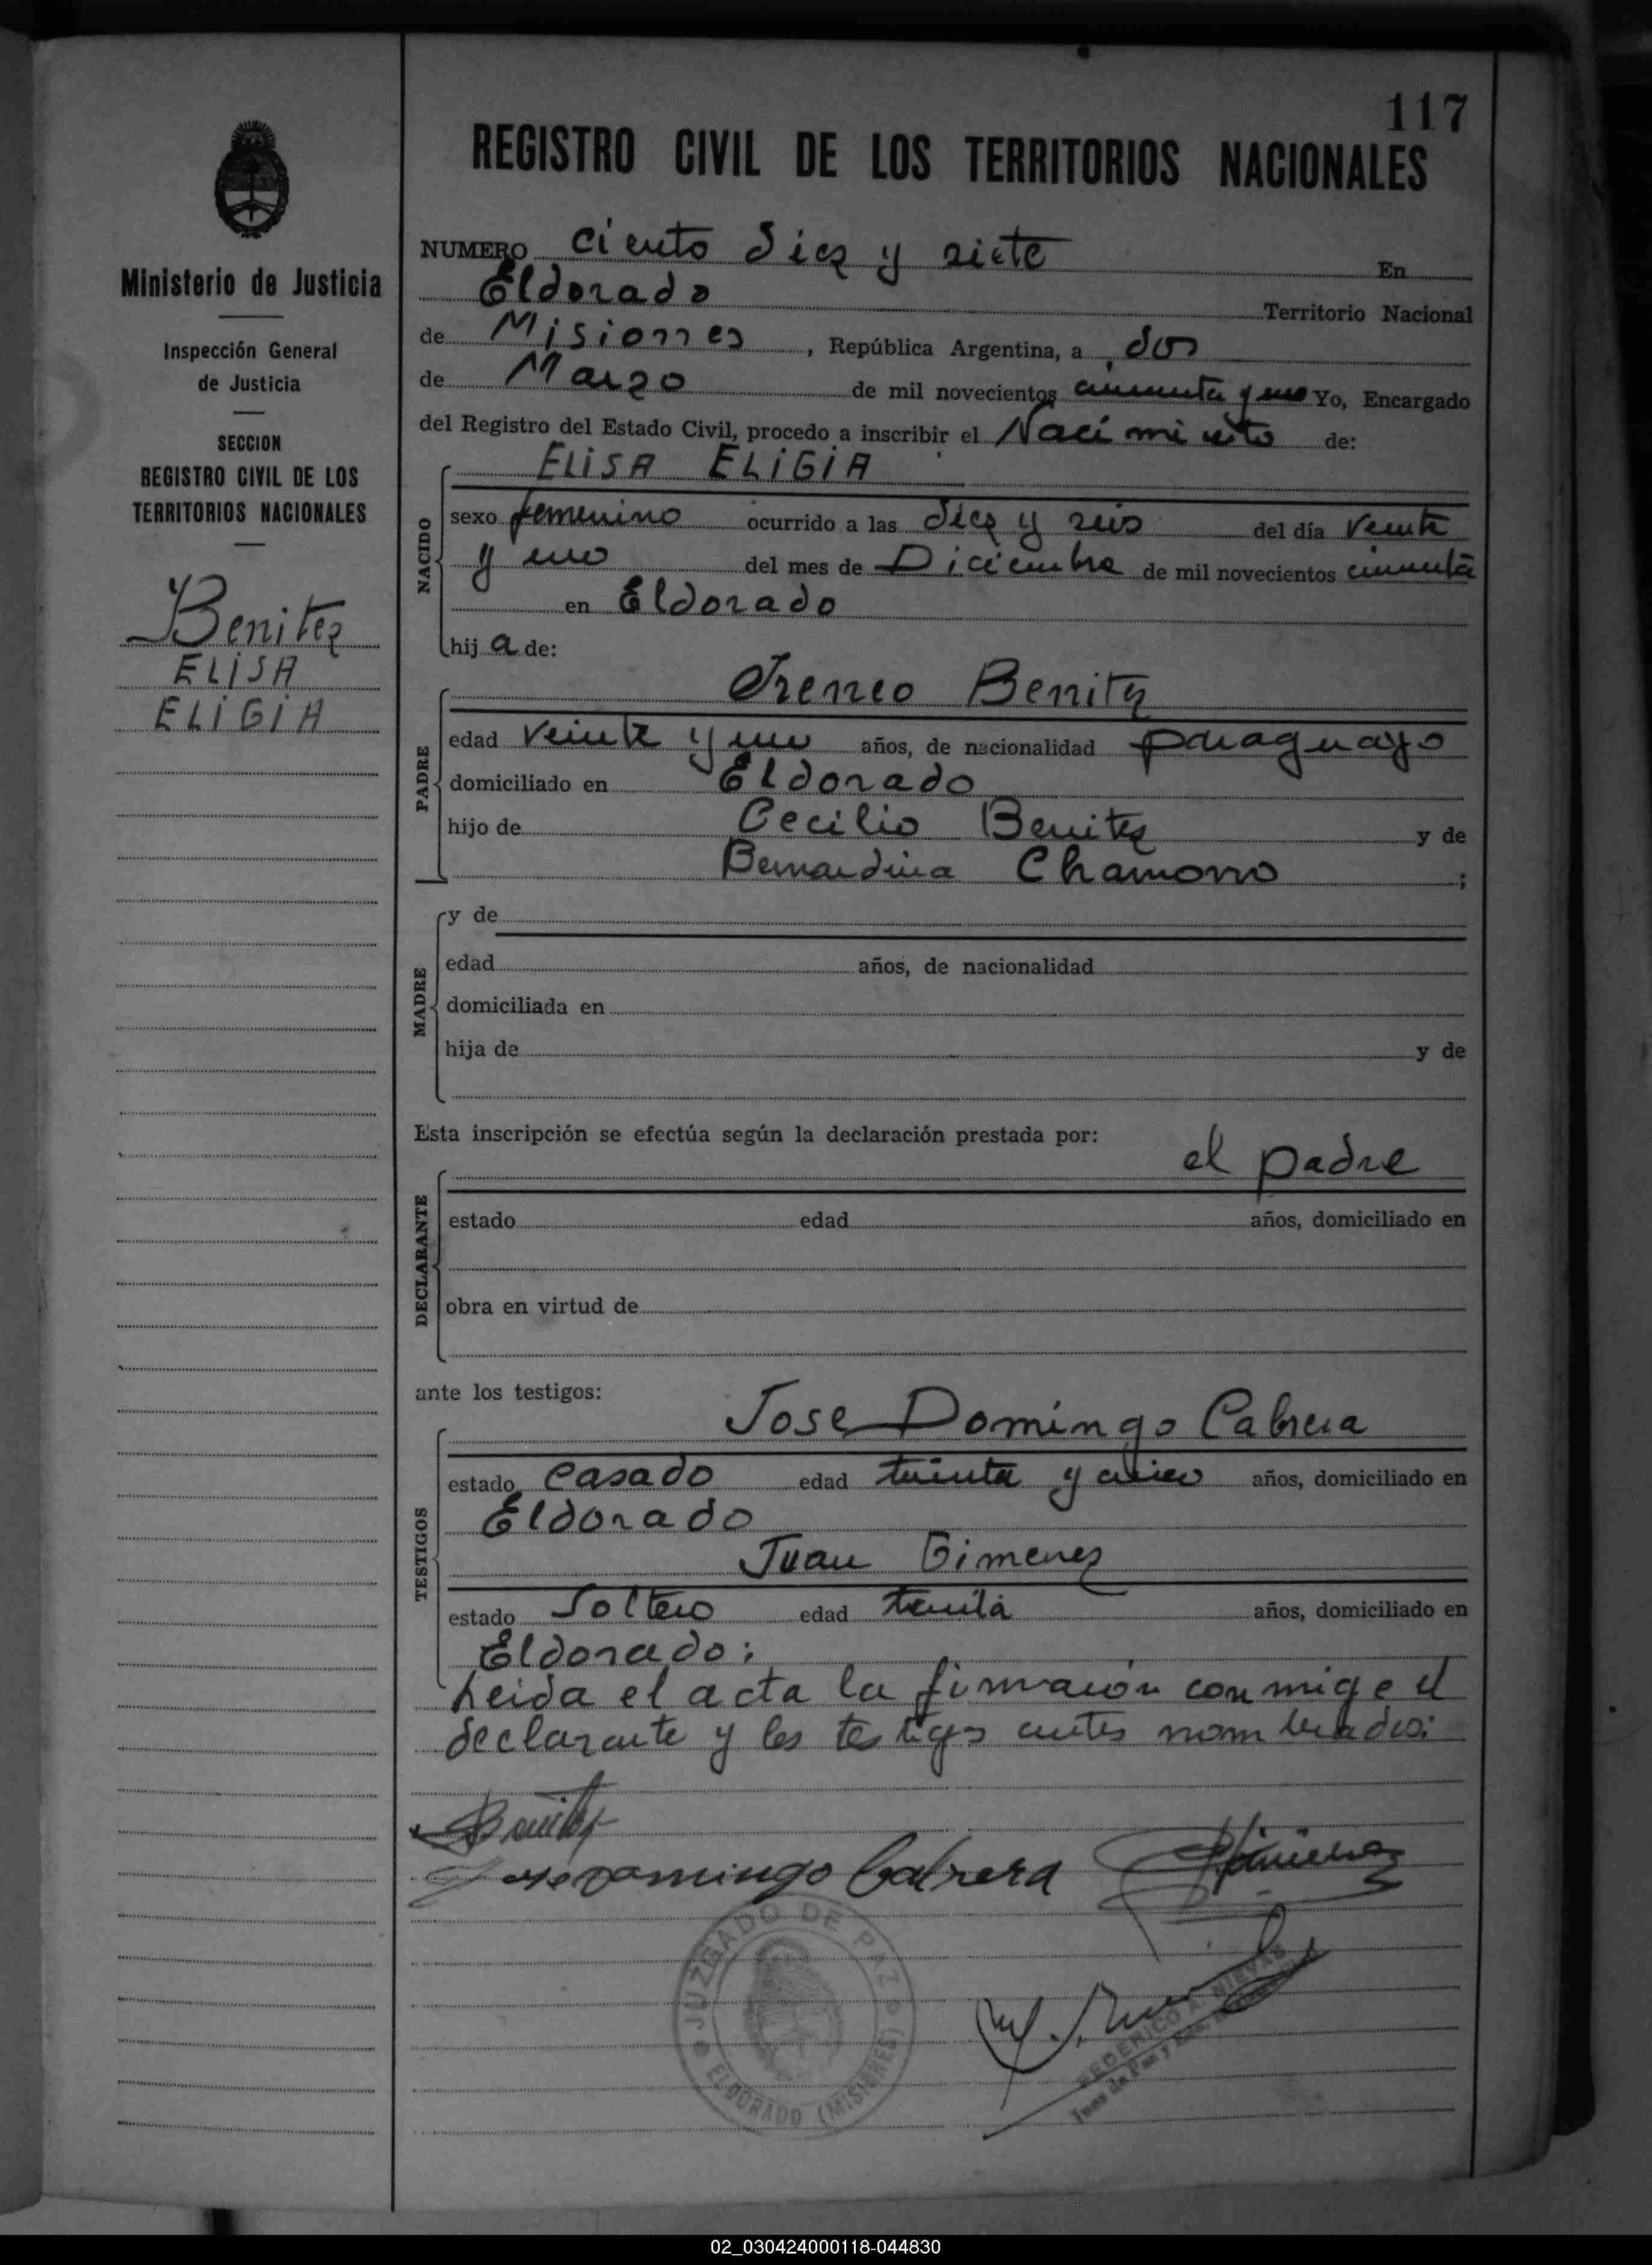 117
REGISTRO CIVIL DE LOS TERRITORIOS NACIONALES
Ministerio de Justicia
Inspección General
de Justicia
SECCION
REGISTRO CIVIL DE LOS
TERRITORIOS NACIONALES
Benitez
ELISA
ELIGIA
NUMERO ciento diez y siete En
Eldorado Territorio Nacional
de Misiones, República Argentina, a dos
de Marzo de mil novecientos cincuenta y uno Yo, Encargado
del Registro del Estado Civil, procedo a inscribir el Nacimiento de:
NACIDO
ELISA ELIGIA
sexo femenino ocurrido a las diez y seis del día veinte
y uno del mes de Diciembre de mil novecientos cincuenta
en Eldorado
hij a de:
PADRE
Ireneo Benitez
edad veinte y uno años, de nacionalidad paraguayo
domiciliado en Eldorado
hijo de Cecilio Benitez y de
Bernardina Chamorro ;
MADRE
y de
edad años, de nacionalidad
domiciliada en
hija de y de
Esta inscripción se efectúa según la declaración prestada por:
el padre
DECLARANTE
estado edad años, domiciliado en
obra en virtud de
ante los testigos:
TESTIGOS
Jose Domingo Cabrera
estado casado edad treinta y cinco años, domiciliado en
Eldorado
Juan Gimenez
estado Soltero edad treinta años, domiciliado en
Eldorado:
Leida el acta la firmaron conmigo el
declarante y los testigos antes nombrados:
Benitez
Jose Domingo Cabrera Gimenez
JUZGADO DE PAZ
ELDORADO (MISIONES)
FEDERICO A. NIEVAS
Juez de Paz y
02_030424000118-044830